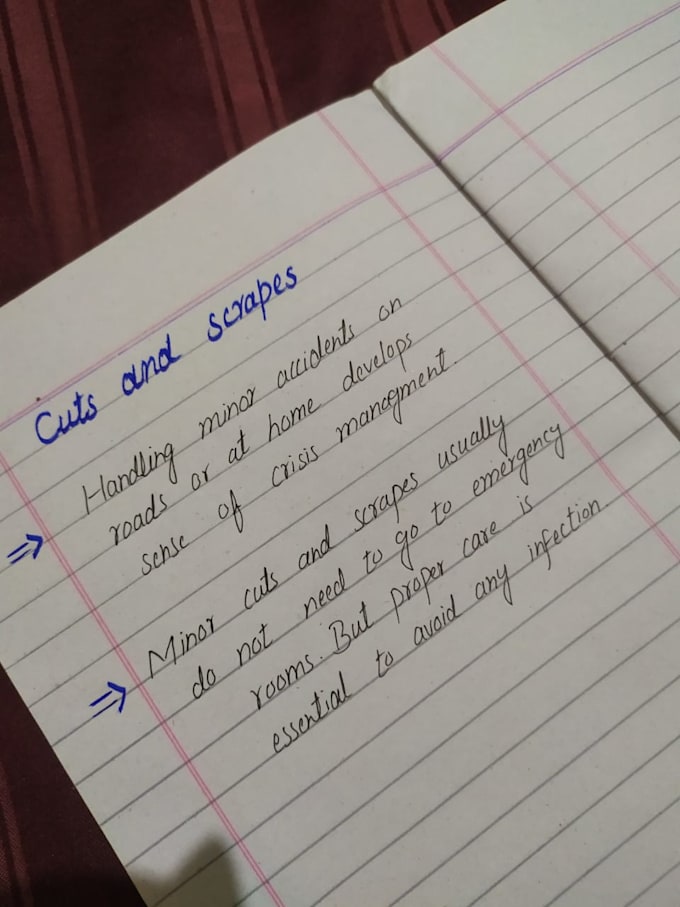 Cuts and scrapes
Handling minor accidents on
roads or at home develops
⇒ sense of crisis managment.
Minor cuts and scrapes usually
do not need to go to emergency
⇒ rooms. But proper care is
essential to avoid any infection.